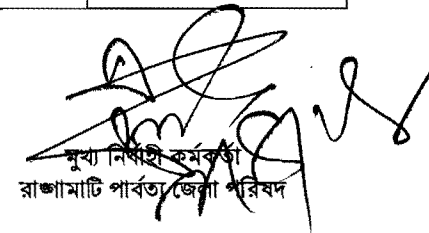 মুখ্য নির্বাহী কর্মকর্তা
রাঙ্গামাটি পার্বত্য জেলা পরিষদ